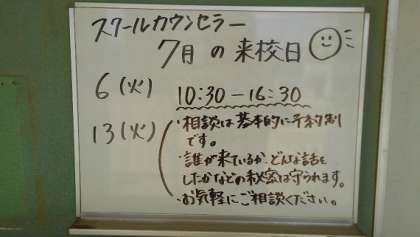 スクールカウンセラー
7月の来校日
6(火) 10:30-16:30
13(火)
・相談は基本的に予約制
です。
・誰が来ているか、どんな話を
したかなどの秘密は守られます。
・お気軽にご相談ください。